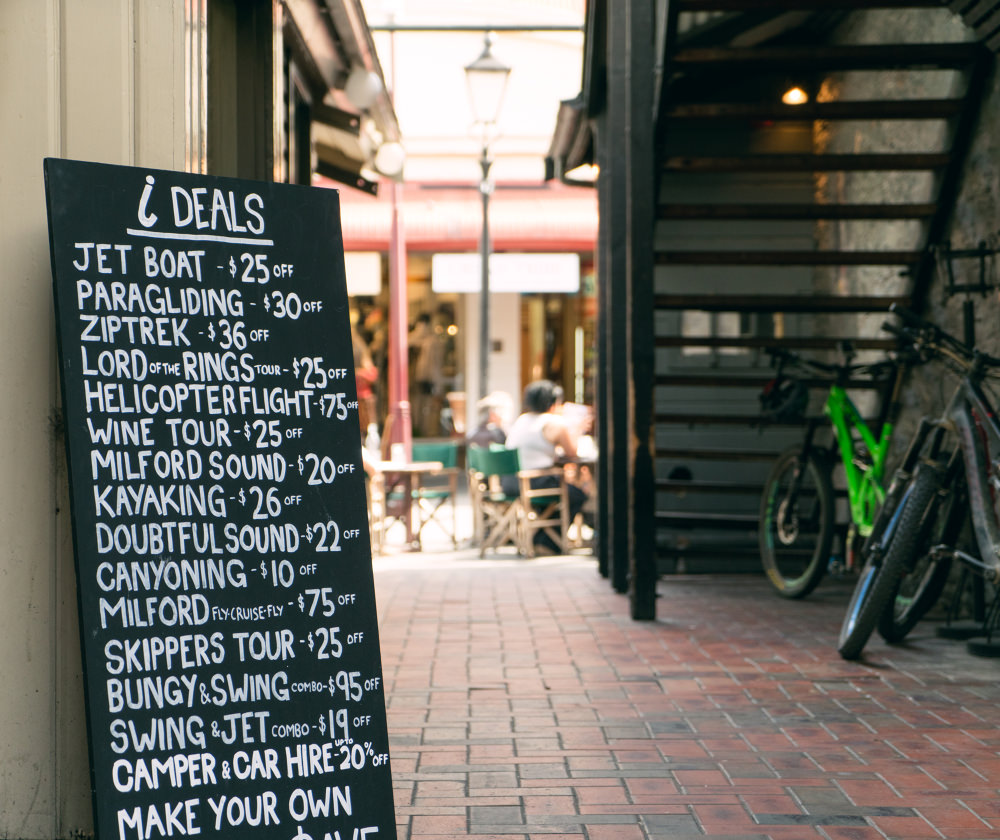 i DEALS
JET BOAT - $25 OFF
PARAGLIDING - $30 OFF
ZIPTREK - $36 OFF
LORD OF THE RINGS TOUR - $25 OFF
HELICOPTER FLIGHT - $75 OFF
WINE TOUR - $25 OFF
MILFORD SOUND - $20 OFF
KAYAKING - $26 OFF
DOUBTFUL SOUND - $22 OFF
CANYONING - $10 OFF
MILFORD FLY-CRUISE-FLY - $75 OFF
SKIPPERS TOUR - $25 OFF
BUNGY & SWING COMBO - $95 OFF
SWING & JET COMBO - $19 OFF
CAMPER & CAR HIRE - UP TO 20% OFF
MAKE YOUR OWN